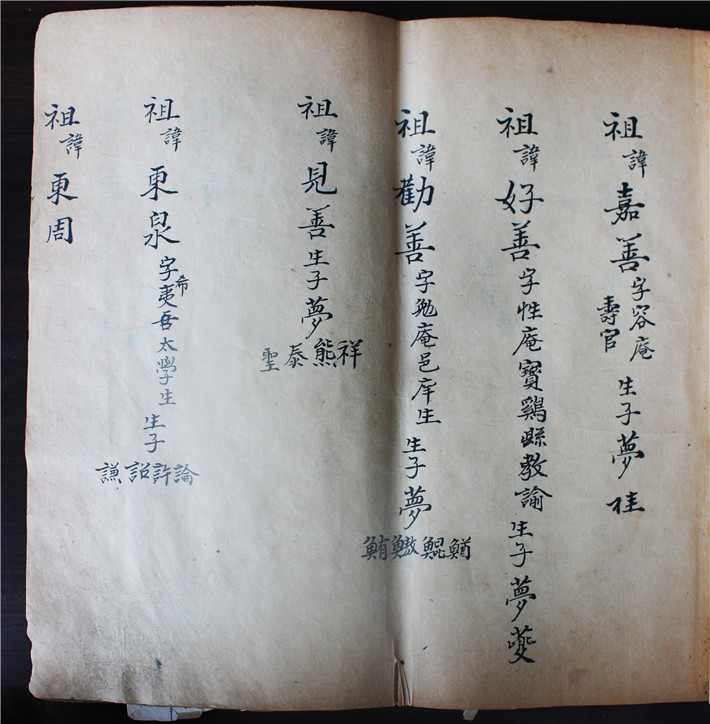 祖諱嘉善字容庵壽官生子夢桂
祖諱好善字性庵寶鷄縣教諭生子夢夔
祖諱勸善字勉庵邑庠生生子夢鰌鯤鰲鮪
祖諱見善生子夢祥熊泰聖
祖諱東泉字希夷吾太學生生子論許詔謙
祖諱東周